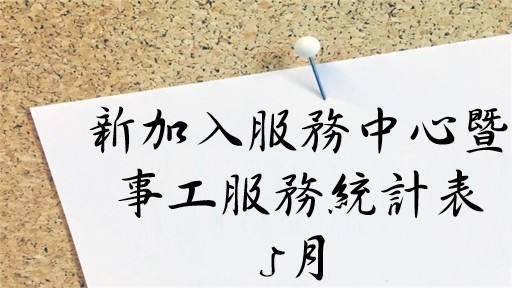 新加入服務中心暨
事工服務統計表
5月